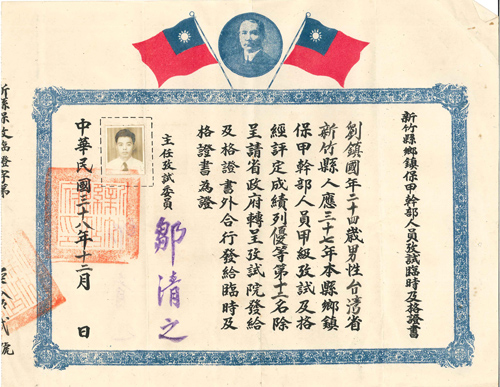 新竹縣鄉鎮保甲幹部人員攷試臨時及格證書
劉鎮國年二十四歲男性台灣省
新竹縣人應三十七年本縣鄉鎮
保甲幹部人員甲級攷試及格
經評定成績列優等第十二名除
呈請省政府轉呈攷試院發給
及格證書外合行發給臨時及
格證書為證
主任攷試委員
鄒清之
中華民國三十八年十二月 日
新縣保攷臨證字第 號